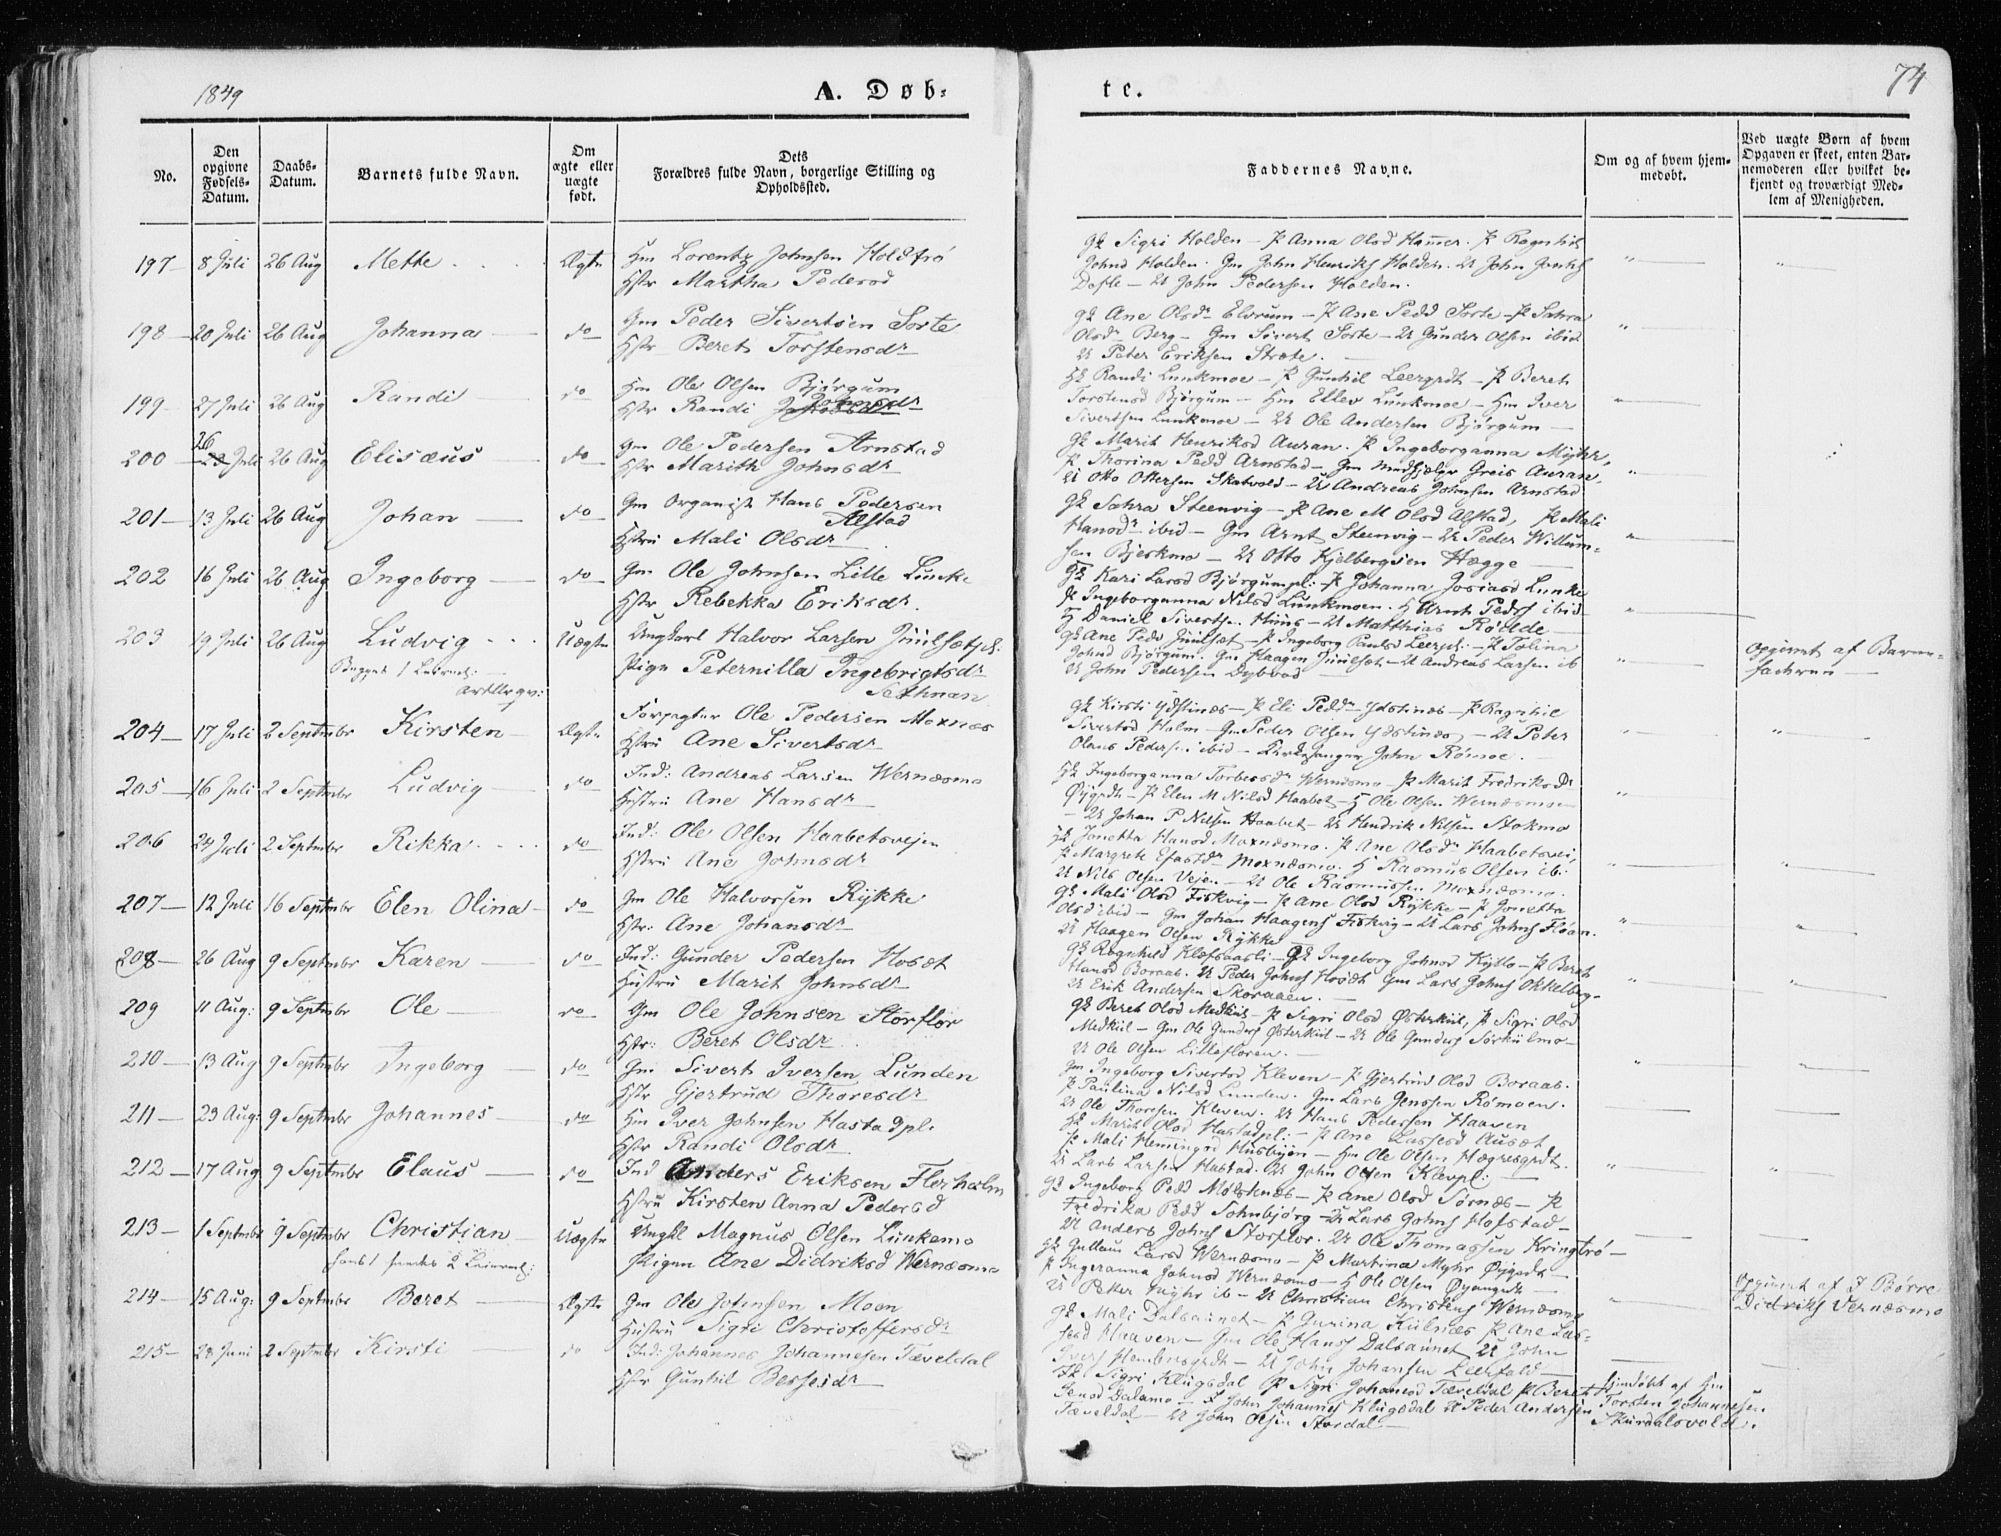 1849
A. Døb-
te.
74
No.
Den opgivne Fødsels-Datum.
Daabs-Datum.
Barnets fulde Navn.
Om ægte eller uægte født.
Dets
Forældres fulde Navn, borgerlige Stilling og
Opholdssted.
Faddernes Navne.
Om og af hvem hjem-
medøbt.
Ved uægte Børn af hvem
Opgaven er skeet, enten Bar-
nemoderen eller hvilket be-
kjendt og troværdigt Med-
lem af Menigheden.
197 8 Juli 26 Aug Mette Ægte Hm Lorentz Johnsen Holdtrø
Hstr Martha Pedersd
Gk Sigri Holden - P Anna Olsd Hammer. P Ragnhil
Johnd Holden. Gm John Henriks Holden. U John
U John Pedersen Holden.
198 20 Juli 26 Aug Johanna do Gm Peder Sivertsen Sorte
Hstr Beret Torstensdr
Gk Ane Olsdr Elvrum - P Ane Pedd Sorte - P Sahra
Olsdr Berg - Gm Sivert Sorte - U Gunder Olsen ibid
U Peter Eriksen Stræte.
199 27 Juli 26 Aug Randi do Hm Ole Olsen Bjørgum
Hstr Randi Johnsdr
Gk Randi Lunkmoe - P Gunhil Leergrdt - P Beret
Torstensd Bjørgum - Hm Ellev Lunkmoe - Hm Iver
Sivertsen Lunkmoe - U Ole Andersen Bjørgum
200 26 Juli 26 Aug Elisæus do Gm Ole Pedersen Arnstad
Hstr Marith Johnsdr
Gk Marit Henriksd Auran. P Ingeborganna Myhr,
P. Thorina Pedd Arnstad - Gm Greis Auran
U Otto Ottersen Skatvold - U Andreas Johnsen Arnstad
201 13 Juli 26 Aug Johan do Gm Organist Hans Pedersen
Alstad
Hstru Mali Olsdr
Gk Sahra Steenvig - P Ane M Olsd Alstad, P Mali
Hansdr ibid - Gm Arnt Steenvig - U Peder Willum-
sen Bjerkmo - U Otto Kjelbergsen Hægge
202 16 Juli 26 Aug Ingeborg do Gm Ole Johnsen Lille Lunke
Hstr Rebekka Eriksdr.
Gk Kari Larsd Bjørgumpl. - P Johanna Josiasd Lunke
P Ingeborganna Nilsd Lunkmoen. G Arnt Peds ibid
G Daniel Sivertsen Huus - U Matthias Rølde
203 19 Juli 26 Aug Ludvig Uægte Ungkarl Halvor Larsen
Pige Peternilla Ingebrigtsdr
Sethnæn
P Ingeborg Paulsd Leerpl. - P Jolina
Johnd Bjørgum. Gm Haagen U Andreas Larsen ib
U John Pedersen Dybvad
opgivet af Barne-
faderen
204 17 Juli 2 Septmbr Kirsten Ægte Forpagter Ole Pedersen Moxnæs
Hstru Ane Sivertsdr
Gk Kirsti Ydstinæs - P Eli Peddr Ydstinæs - P Ragnhil
Sivertsd Holm - Gm Peder Olsen Ydstinæs - U Peter
Olaus Pedersen ibid - Kirkesanger John Rømoe.
205 16 Juli 2 Septmbr Ludvig do Ind: Andreas Larsen Wernæsmo
Hstru Ane Hansdr
Gk Ingeborganna Torbersdr Wernæsmo - P Marit Fredriksdr
Øygrdt - P Elen M Nilsd Haabet - G Ole Olsen Wernæsmoe
- U Johan P Nilsen Haabet - U Hendrik Nilsen Stokmo
206 24 Juli 2 Septmbr Rikka do Ind: Ole Olsen Haabetsvejen
Hstru Ane Johnsdr
Gk Jonetta Hansd Moxnæsmo. P Ane Olsdr Haabetsvei,
P Margrete Moxnæsmo. G Rasmus Olsen ib.
U Nils Olsen Vejen - U Ole Rasmussen Moxnæsmo.
207 12 Juli 16 Septmbr Elen Olina do Gm Ole Halvorsen Rykke
Hstr: Ane Johansdr
Gk Mali Olsd Fiskvig - P Ane Olsd Rykke - P Jonetta
Olsd ibid - Gm Johan Haagens Fiskvig - U Lars Johns Fløan.
U Haagen Olsen Rykke
208 26 Aug 9 Septmbr Karen do Ind: Gunder Pedersen Hosæt
Hustru Marit Johnsdr
Gk Ragnhild - Gk Ingeborg Johnsd Kjtlo - P Beret
Hansd Boraas. U Peder Johns Gm Lars Johns Okkelberg
U Erik Andersen Skoraaen.
209 11 Aug: 9 Septmbr Ole do Gm Ole Johnsen Storflor
Hstr: Beret Olsdr
Gk Beret Olsd Medkiil - P Sigri Olsd Østerkiil, P Sigri Olsd
Medkiil - Gm Ole Gunders Østerkiil - U Ole Gunders Sørkiilmo
U Ole Olsen Lillefloren.
210 13 Aug 9 Septmbr Ingeborg do Gm Sivert Iversen Lunden
Hstr Gjertrud Thoresdr
Gm Ingeborg Sivertsd Kleven - P Gjertrud Olsd Boraas.
P Paulina Nilsd Lunden. Gm Lars Jenssen Rømoen.
U Ole Thoresen Kleven. U Hans Pedersen Haaven
211 23 Aug: 9 Septmbr Johannes do Hm Iver Johnsen Hastadpl.
Hstr Randi Olsdr
Gk Marit Olsd Hastadpl. - P Ane Larsesd Ausæt
P Mali Hemmingsd Husbyen - Hm Ole Olsen Hægresgrdt.
U Lars Larsen Hastad. U John Olsen Klevpl:
212 17 Aug 9 Septmbr Elaus do Ind Anders Eriksen Florholm
Hstru Kirsten Anna Pedersd
Gk Ingeborg Pedd Mølsknæs - P Ane Olsd Sørnæs - P
Fredrika Pedd Sohnbjørg - U Lars Johns Hofstad -
U Anders Johns Storflor. U Ole Thomassen Kringtrø
213 1 Septmbr 9 Septmbr Christian Uægte Ungkl Magnus Olsen Lunkemo
Pigen Ane Didriksd Wernæsmo
Gk Gullaug Larsd Wernæsmo - P Martina Myhr Øygrdt -
P Ingeranna Johnsd Wernæsmo - G Ole Olsen Øyangrdt
U Peter Myhr ib - U Christian Christens Wernæsmo
Opgivet af I Børre
Didriks Vernæsmo
214 15 Aug: 9 Septmbr Beret Ægte Gm Ole Johnsen Moen
Hustru Sigri Christoffersdr
Gk Mali Dalsaunet - P Gurina Kiilnæs P Ane Lar-
sesd Haaven - Gm Ole Hans Dalsaunet U John
Ivers Hembresgrdt - U John Johansen Leerfald
215 28 Juni 2 Septmbr Kirsti do Ind: Johannes Johannesen Tæveldal
Hstr Gunhil Bersesdr
Gk Sigri Klugsdal P Sigri Johansd Tæveldal P Beret
Jensd Dalamo - G John Johannes Klugsdal U Peder Andersen
Tæveldal - U John Olsen Stordal
Hjemdøbt af Gm
Torsten Johannesen
Skurdalsvold.